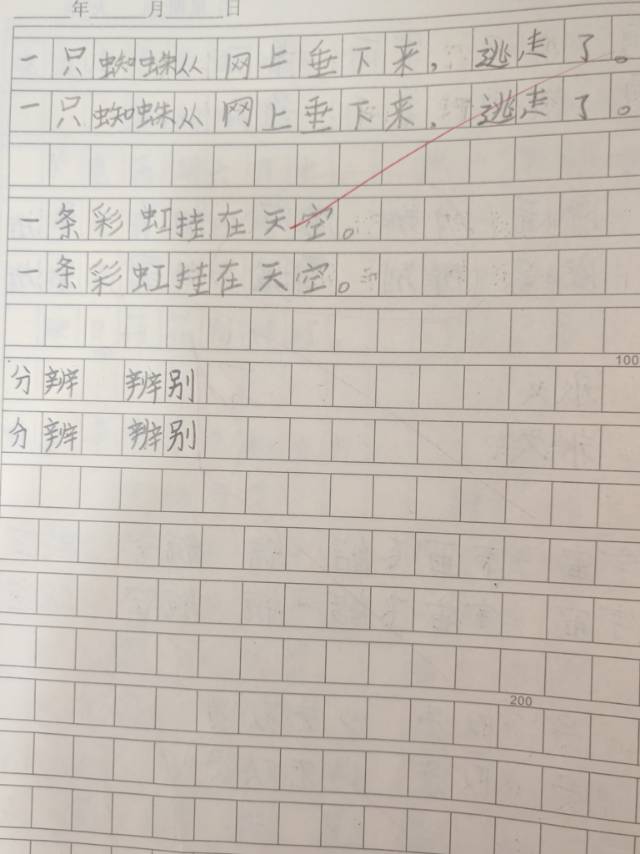 年 月 日
一只蜘蛛从网上垂下来，逃走了。
一只蜘蛛从网上垂下来，逃走了。
一条彩虹挂在天空。
一条彩虹挂在天空。
100
分辨 辨别
分辨 辨别
200